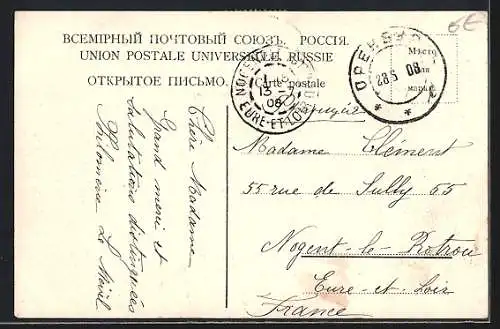 ВСЕМІРНЫЙ ПОЧТОВЫЙ СОЮЗЪ. РОССІЯ.
UNION POSTALE UNIVERSELLE. RUSSIE
ОТКРЫТОЕ ПИСЬМО. Carte postale
Мѣсто
для
марки.
28 5 08
EURE-ET-LOIR
08
6€
Chère Madame
Grand merci et
salutations distinguées
Philomène Le
Madame Clément
55 rue de Sully 55
Nogent-le-Rotrou
Eure-et-Loir
France